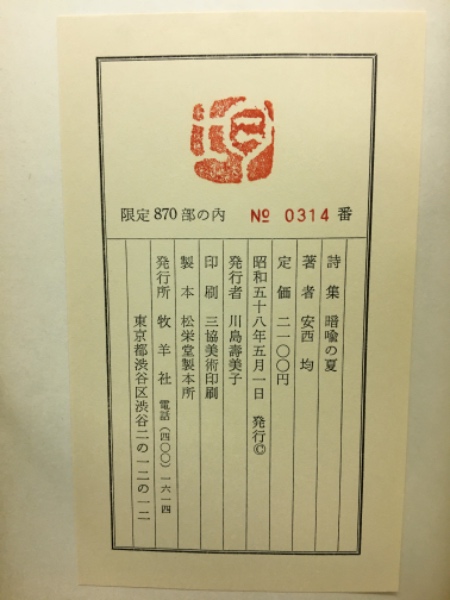 限定870部の内 № 0314 番
詩集 暗喩の夏
著者 安西 均
定価 二一〇〇円
昭和五十八年五月一日 発行©
発行者 川島壽美子
印刷 三協美術印刷
製本 松栄堂製本所
発行所 牧羊社 電話(四〇〇)一六一四
東京都渋谷区渋谷二の一二の一二